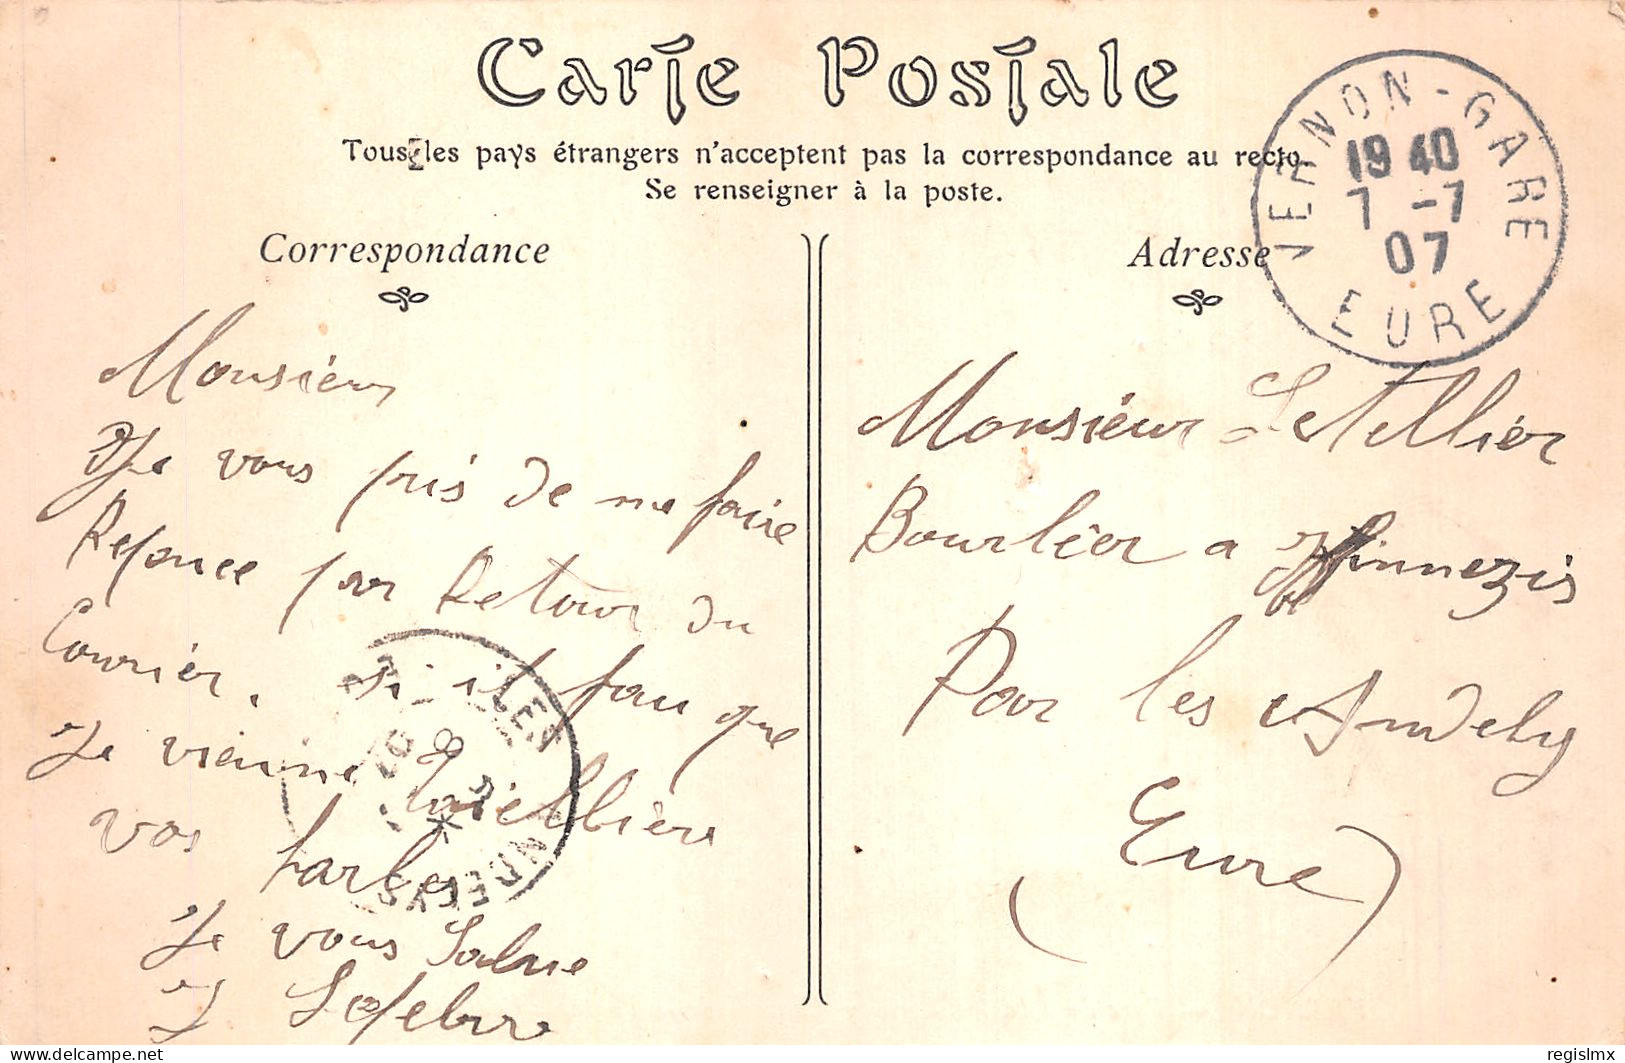 Carte Postale
Tous les pays étrangers n'acceptent pas la correspondance au recto.
Se renseigner à la poste.
Correspondance
Adresse
VERNON-GARE
19 40
7 -7
07
EURE
Monsieur
Je vous pris de me faire
Reponce par Retour du
Courrier. si il fau que
Je vienne
vos
Je vous Salue
J Lefebvre
LES
NDELYS
Monsieur Letellier
Bourlier a
Par les Andely
(Eure)
delcampe.net
regislmx